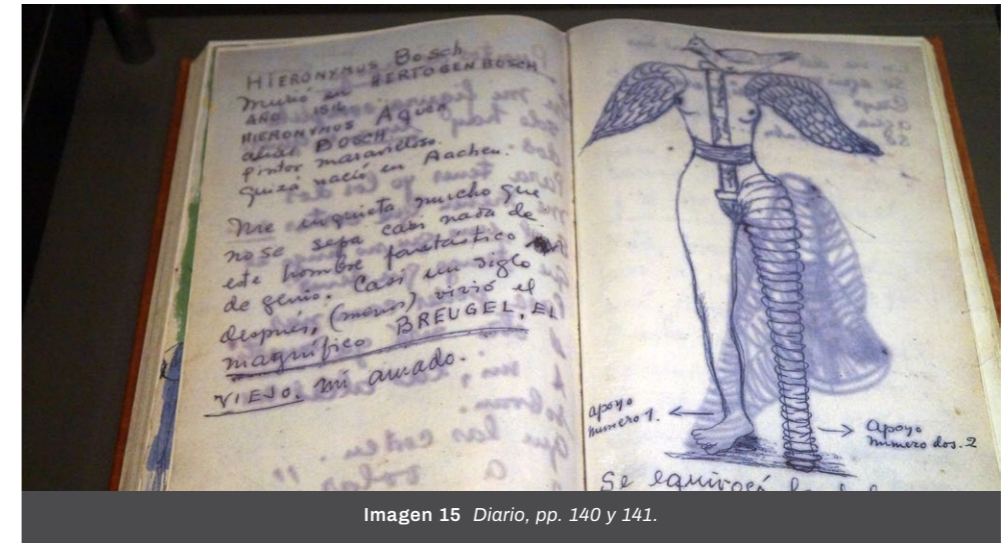 HIERONYMUS BOSCH
murió en HERTOGENBOSCH
AÑO 1516
HIERONYMUS AQUEN
alias BOSCH.
pintor maravilloso.
quizá nació en Aachen.
Me inquieta mucho que
no se sepa casi nada de
este hombre fantástico
de genio. Casi un siglo
después, (menos) vivió el
magnífico BREUGEL, EL
VIEJO, mi amado.
apoyo
numero 1.
Apoyo
numero dos. 2
Se equivocó la
Imagen 15 Diario, pp. 140 y 141.